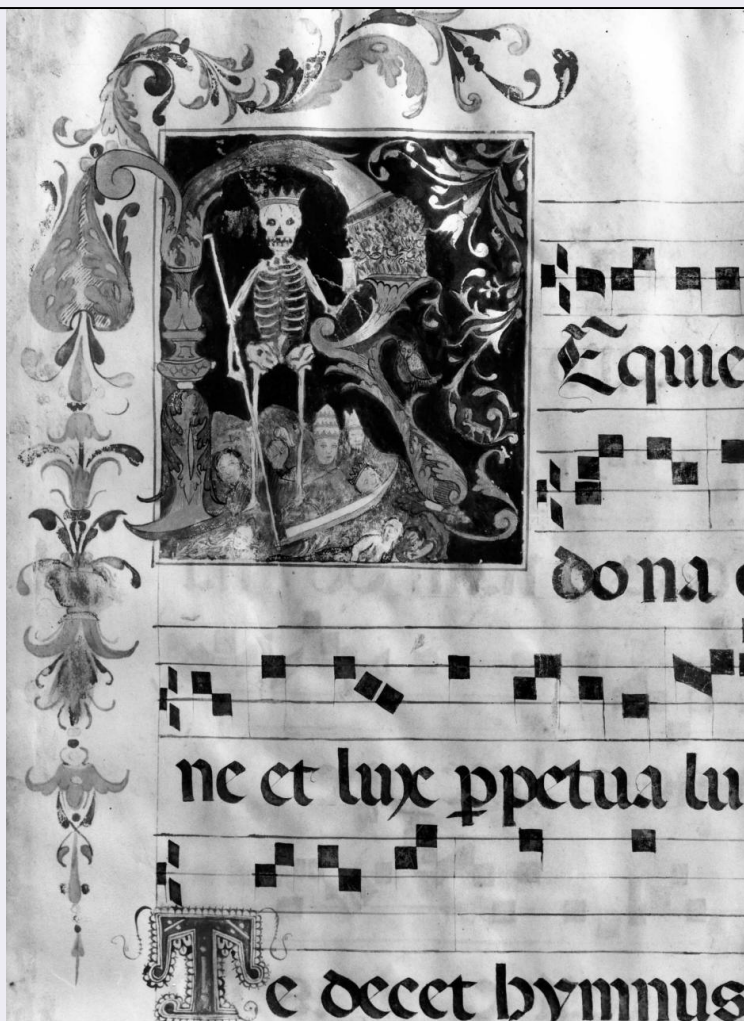 REquie
dona e
ne et luxe ꝑpetua lu
Te decet hymnus